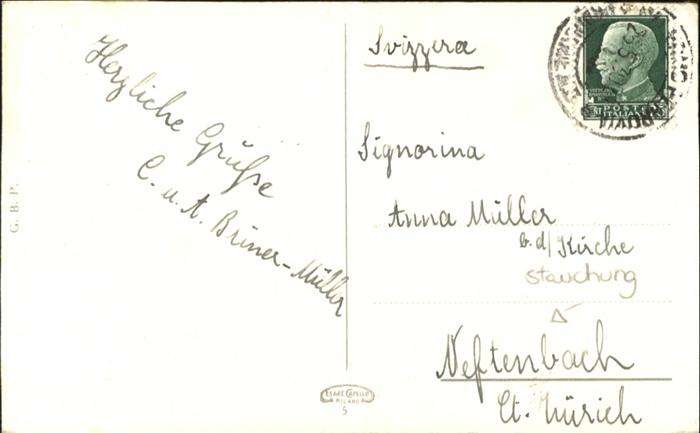 Herzliche Grüße
C. u. A. Briner-Müller
Svizzera
Signorina
Anna Müller
b. d/ Kirche
Stauchung
Neftenbach
Ct. Zürich
POSTE
ITALIANE
G. B. P.
CESARE CAPELLO
MILANO
5